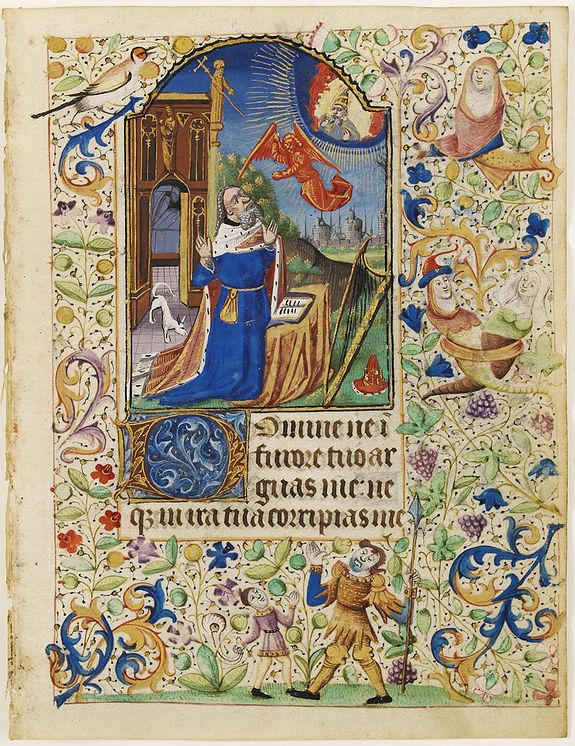 Domine ne i
furore tuo ar
guas me: ne
qz in ira tua corripias me